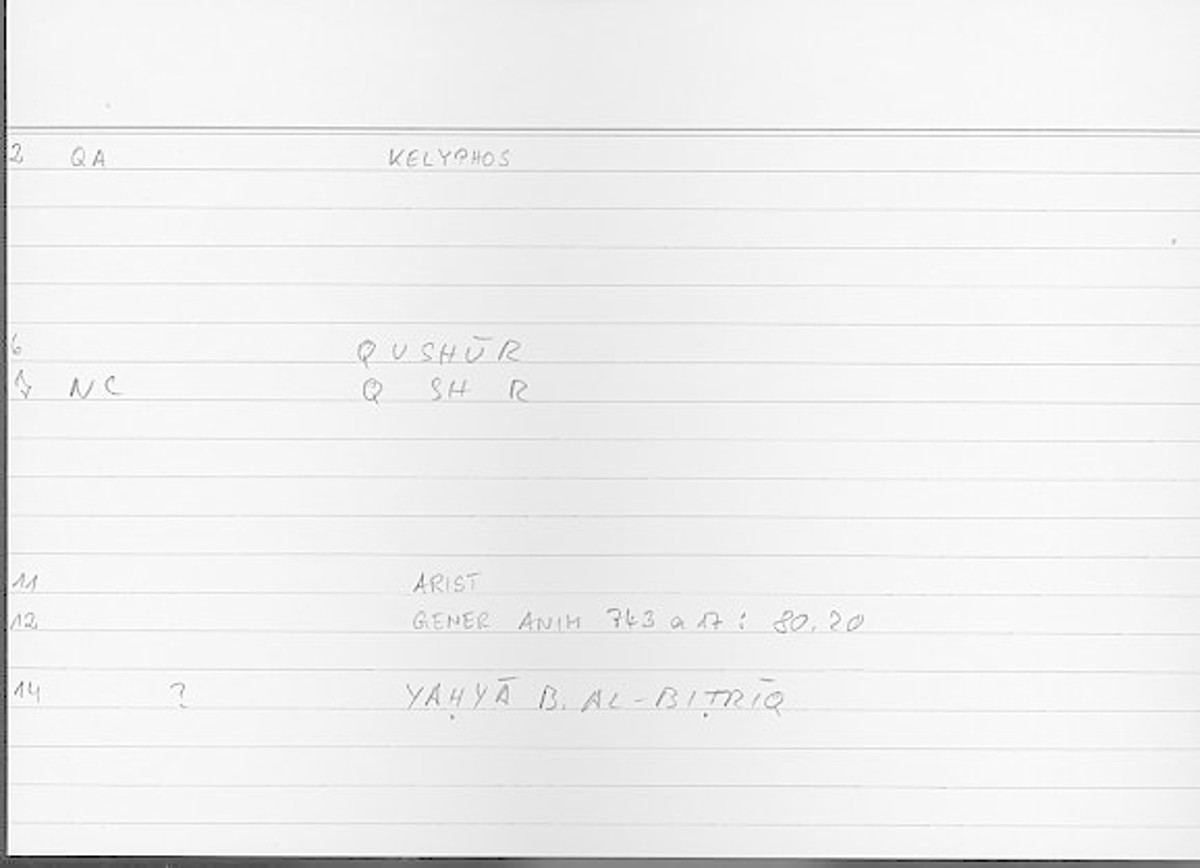 2 QA KELYPHOS
6 QUSHŪR
NC Q SH R
11 ARIST
12 GENER ANIM 743 a 17 : 80.20
14 ? YAḤYĀ B. AL-BIṬRĪQ